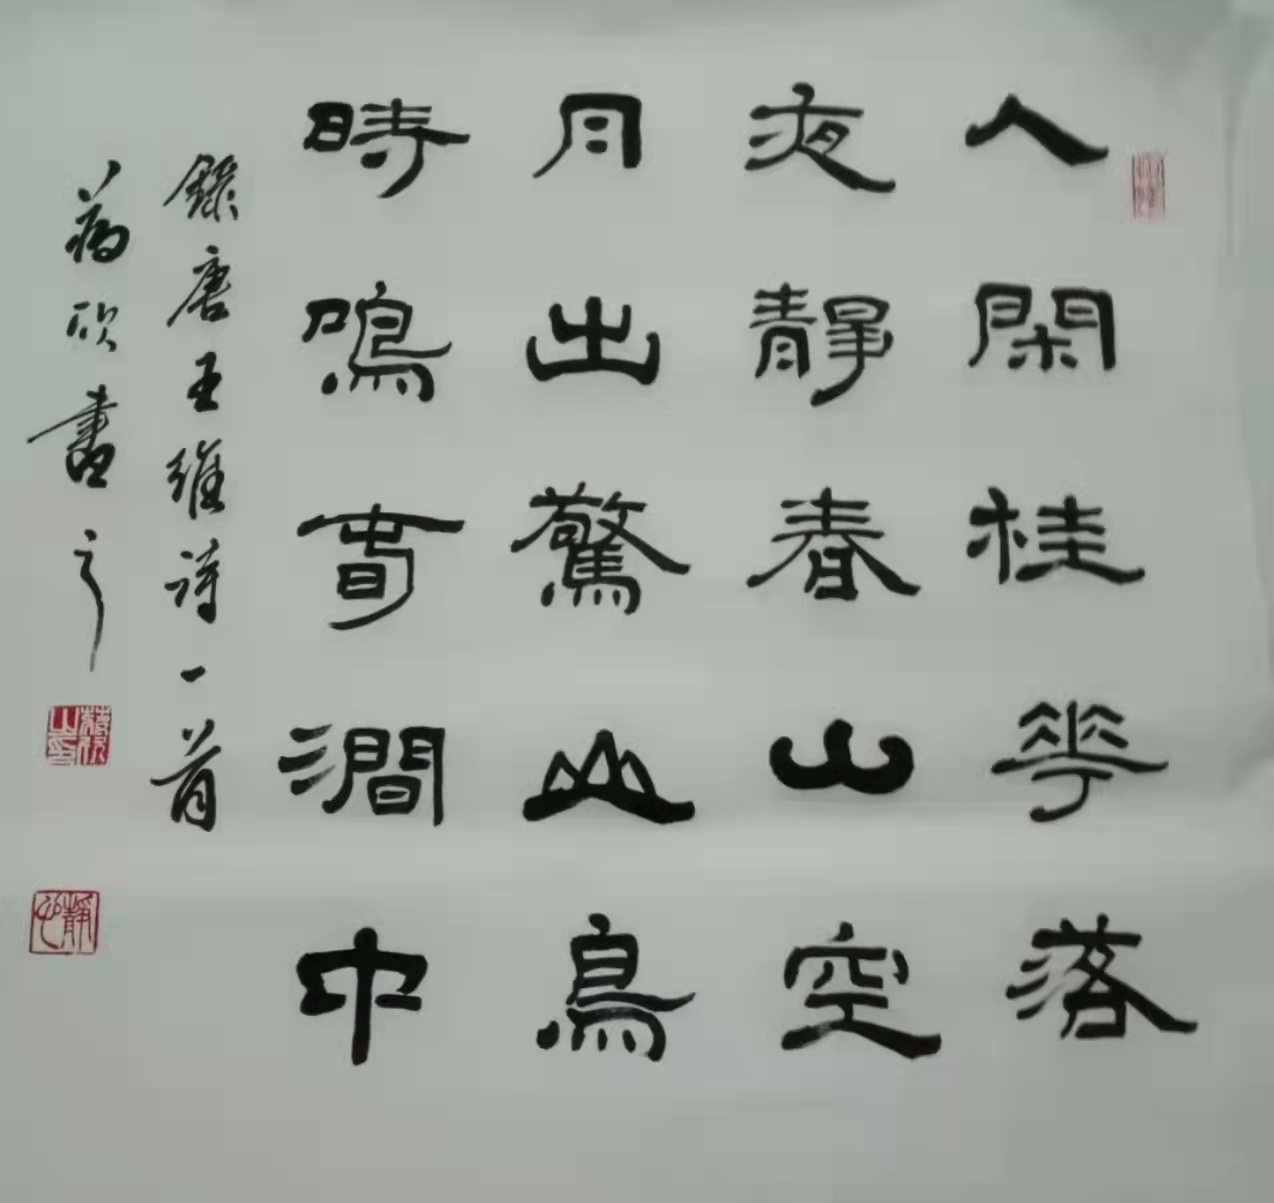 人閑桂花落
夜靜春山空
月出驚山鳥
時鳴春澗中
錄唐王維詩一首
欣書